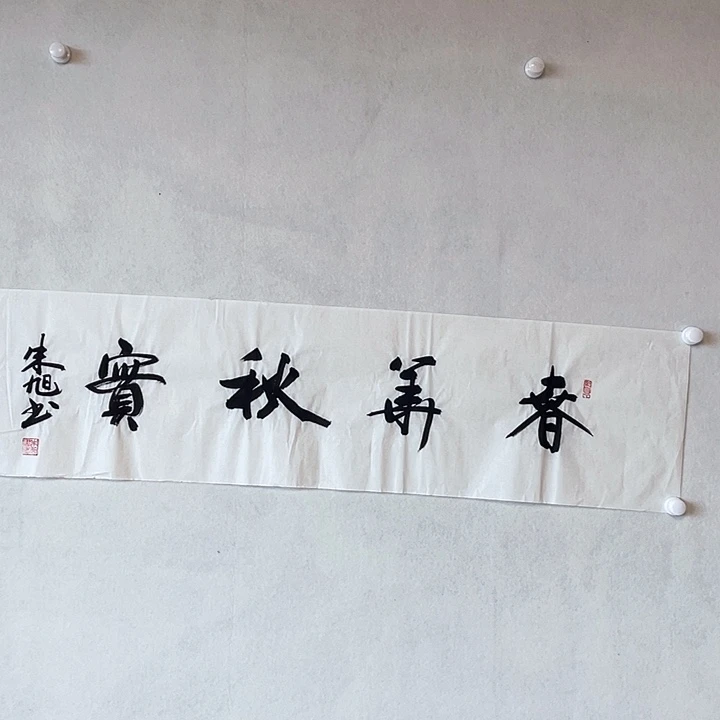 春華秋實
朱旭书